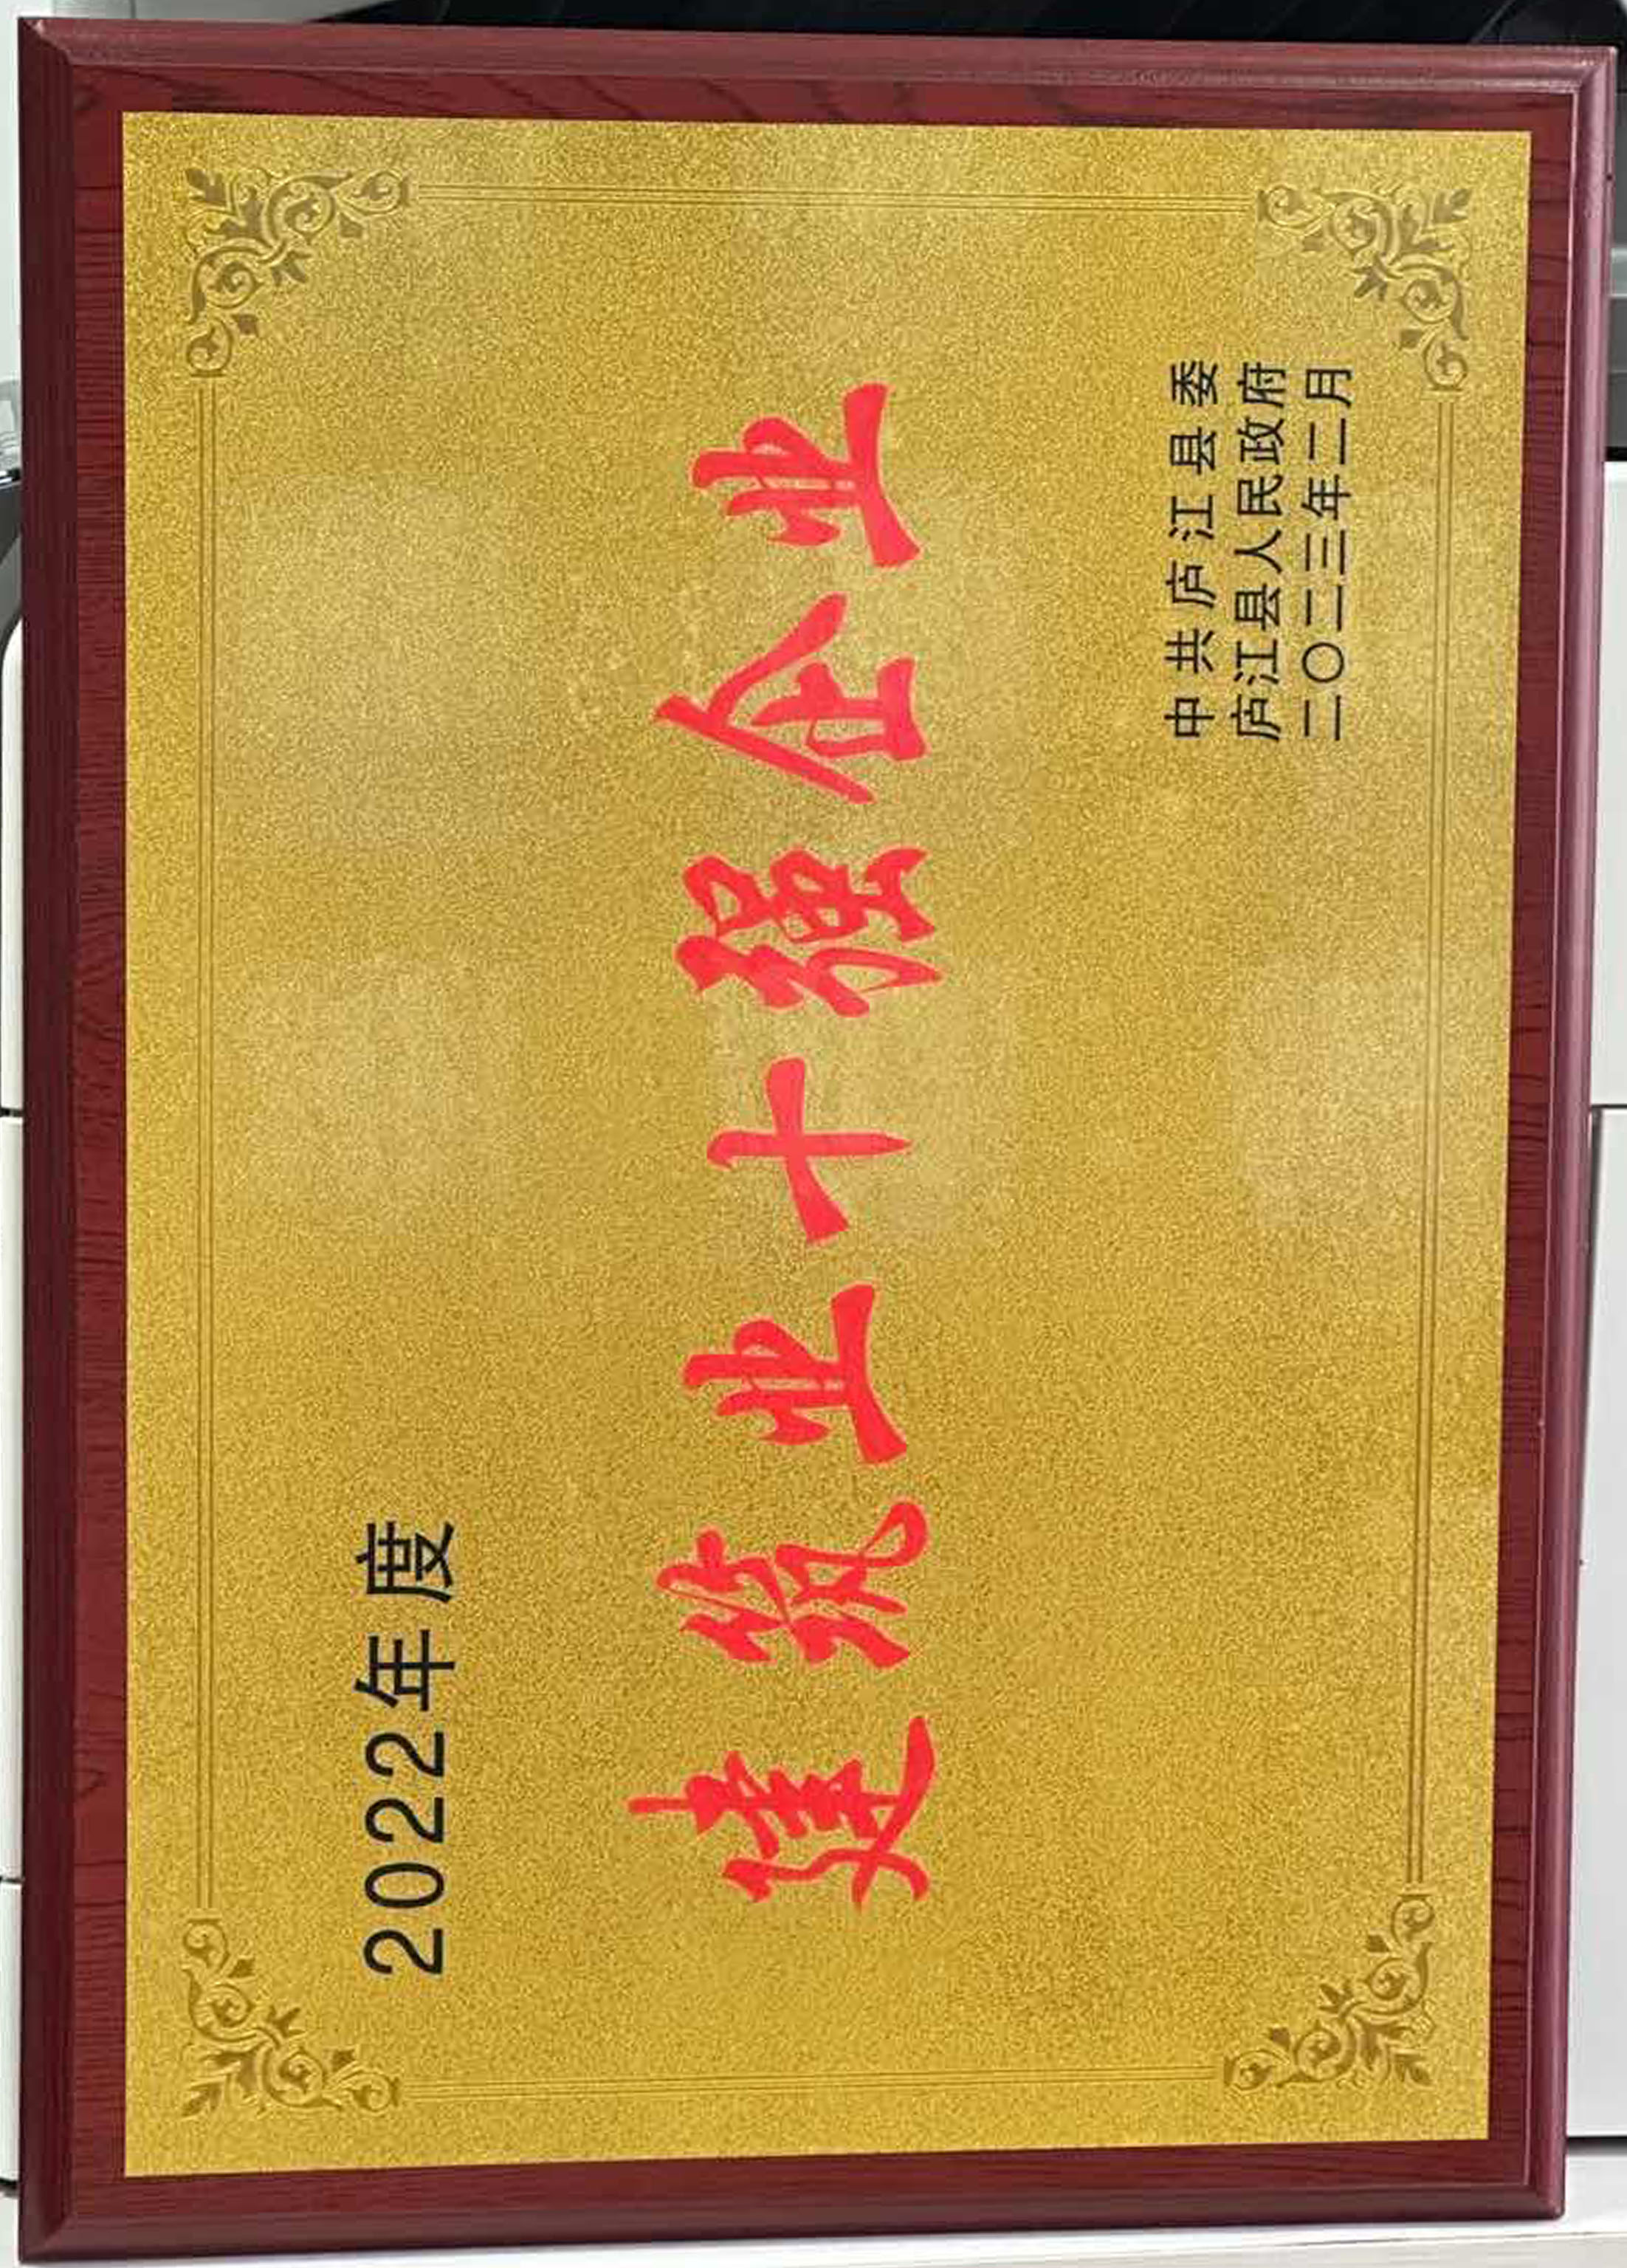 2022年度
建筑业十强企业
中共庐江县委
庐江县人民政府
二〇二三年二月